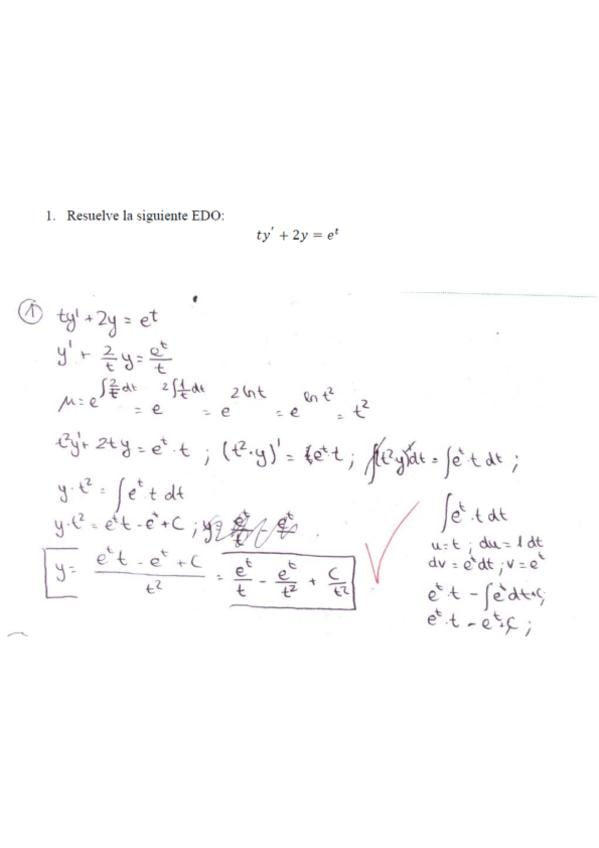 1. Resuelve la siguiente EDO:
ty' + 2y = e^t
① ty' + 2y = e^t
y' + 2/t y = e^t/t
μ = e^∫2/t dt = e^2∫1/t dt = e^2 ln t = e^ln t² = t²
t²y' + 2ty = e^t · t ; (t²·y)' = e^t · t ; ∫(t²y)' dt = ∫e^t · t dt ;
y·t² = ∫e^t · t dt
y·t² = e^t t - e^t + C ;
y = (e^t t - e^t + C)/t² = e^t/t - e^t/t² + C/t²
∫e^t · t dt
u = t ; du = 1 dt
dv = e^t dt ; v = e^t
e^t · t - ∫e^t dt + C;
e^t · t - e^t + C ;